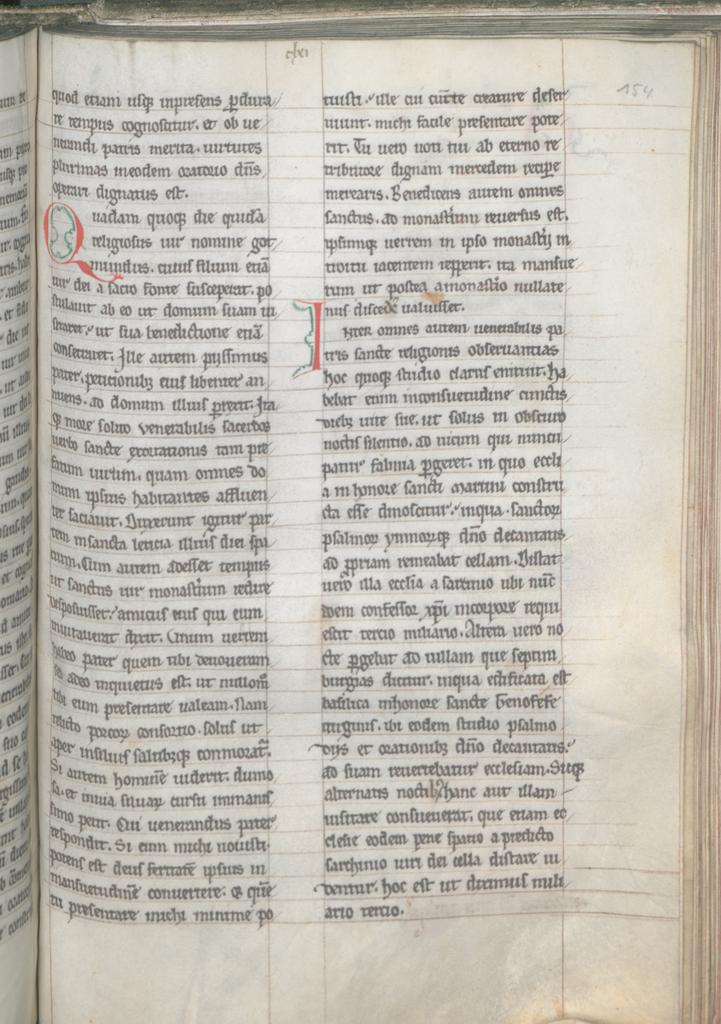 clxi
154
quod etiam usq; inpresens ꝑdura
re tempus cognoscitur. et ob ue
nerandi patris merita. uirtutes
plurimas ineodem oratorio dñs
operari dignatus est.
Quadam quoq; die quidā
religiosus uir nomine got
mundus. cuius filium etiā
uir dei a sacro fonte susceperat. po
stulauit ab eo ut domum suam in
traret. ut sua benedictione etiā
consecraret. Ille autem pijssimus
pater, peticionibꝫ eius libenter an
nuens. ad domum illius ꝑrexit. Ita
q; more solito venerabilis sacerdos
uerbo sancte exortationis tam pre
fatum uirum. quam omnes do
mum ipsius habitantes affluen
ter saciauit. Duxerunt igitur par
tem insancta leticia illius diei spa
cium. Cum autem adesset tempus
ut sanctus uir monasterium redire
disposuisset. amicus eius qui eum
inuitauerat dixit. Unum uerrem
habeo pater quem tibi deuoueram
sed adeo inquietus est. ut nullom̊
tibi eum presentare valeam. Nam
relicto porcorꝝ consortio. solus ut
aper insiluis saltibꝫq; commorat̃.
Si autem hominē uiderit. dumo
sa. et inuia siluarꝝ cursu inmanis
simo petit. Cui venerandus pater
respondit. Si eum michi nouisti
potens est deus feritatē ipsius in
mansuetudinē conuertere. Et quē
tu presentare michi minime po
tuisti. ille cui cuncte creature deser
uiunt. michi facile presentare pote
rit. Tu uero uoti tui ab eterno re
tributore dignam mercedem recipe
merearis. Benedicens autem omnes
sanctus. ad monasterium reuersus est.
ipsumq; uerrem in ipso monasterij in
troitu iacentem repperit. ita mansue
tum ut postea amonasterio nullate
nus discedere ualuisset.
Inter omnes autem uenerabilis pa
tris sancte religionis obseruantias
hoc quoq; studio clarus enituit. Ha
bebat enim inconsuetudine cunctis
diebꝫ uite sue. ut solus in obscuro
noctis silentio. ad uicum qui nuncu
patur sabinia ꝑgeret. in quo eccli
a in honore sancti martini constru
cta esse dinoscitur. inqua sanctorꝝ
psalmorꝝ ymnorꝝq; dño decantatis
ad ꝓpriam remeabat cellam. Distat
uero illa ecclia a sarcinio ubi nūc
idem confessor xpi incorpore requi
escit tercio miliario. Altera uero no
cte ꝑgebat ad uillam que septim
burgias dicitur. inqua edificata est
basilica inhonore sancte Genofefe
uirginis. ibi eodem studio psalmo
dijs et orationibꝫ dño decantatis.
ad suam reuertebatur ecclesiam. Sicq;
alternatis noctibꝫ hanc aut illam
uisitare consueuerat. que etiam ec
clesie eodem pene spatio a predicto
sarchinio uiri dei cella distare ui
dentur. hoc est ut diximus mili
ario tercio.